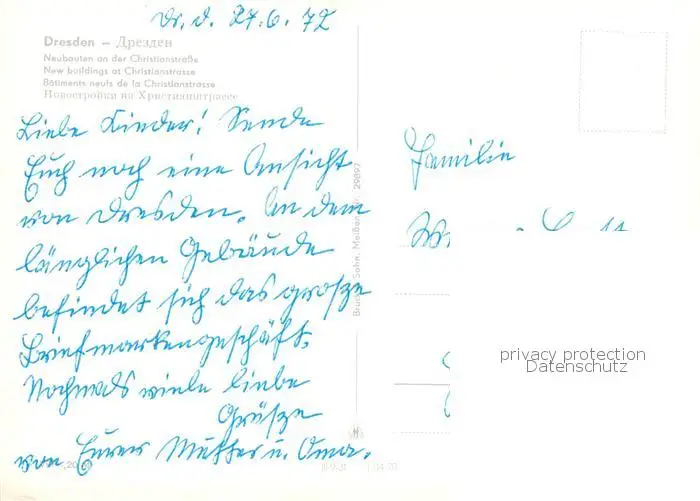 Dr. d. 27.6.72
Dresden – Дрезден
Neubauten an der Christianstraße
New buildings at Christianstrasse
Bâtiments neufs de la Christianstrasse
Новостройки на Христианштрассе
Liebe Kinder! Sende
Euch noch eine Ansicht
von Dresden. In dem
länglichen Gebäude
befindet sich das grosze
Briefmarkengeschäft.
Nochmals viele liebe
Grüsze
von Eurer Mutter u. Oma.
Familie
Bruck Sohn, Meißen 29897
privacy protection
Datenschutz